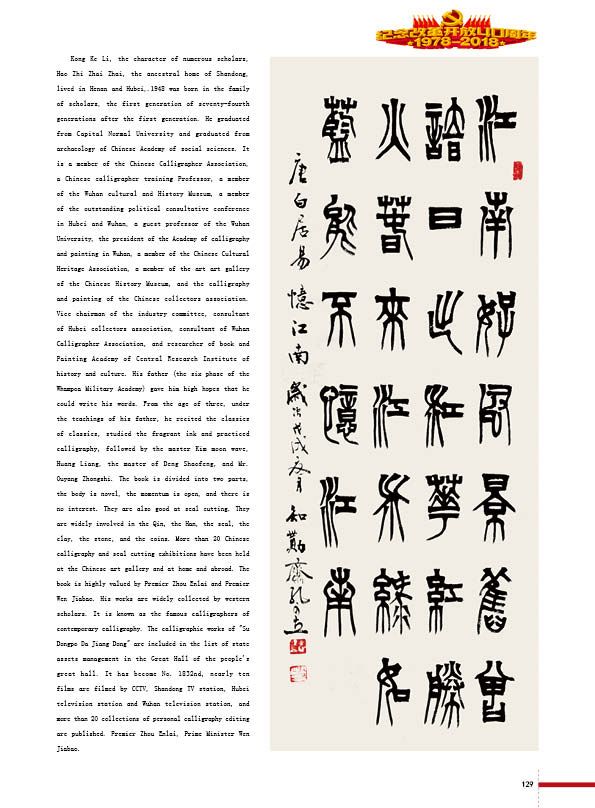 纪念改革开放40周年
1978-2018
Kong Ke Li, the character of numerous scholars,
Hao Zhi Zhai Zhai, the ancestral home of Shandong,
lived in Henan and Hubei,.1968 was born in the family
of scholars, the first generation of seventy-fourth
generations after the first generation. He graduated
from Capital Normal University and graduated from
archaeology of Chinese Academy of social sciences. It
is a member of the Chinese Calligrapher Association,
a Chinese calligrapher training Professor, a member
of the Wuhan cultural and History Museum, a member
of the outstanding political consultative conference
in Hubei and Wuhan, a guest professor of the Wuhan
University, the president of the Academy of calligraphy
and painting in Wuhan, a member of the Chinese Cultural
Heritage Association, a member of the art art gallery
of the Chinese History Museum, and the calligraphy
and painting of the Chinese collectors association.
Vice chairman of the industry committee, consultant
of Hubei collectors association, consultant of Wuhan
Calligrapher Association, and researcher of book and
Painting Academy of Central Research Institute of
history and culture. His father (the six phase of the
Whampoa Military Academy) gave him high hopes that he
could write his words. From the age of three, under
the teachings of his father, he recited the classics
of classics, studied the fragrant ink and practiced
calligraphy, followed by the master Kim moon wave,
Huang Liang, the master of Deng Shaofeng, and Mr.
Ouyang Zhongshi. The book is divided into two parts,
the body is novel, the momentum is open, and there is
no interest. They are also good at seal cutting. They
are widely involved in the Qin, the Han, the seal, the
clay, the stone, and the coins. More than 20 Chinese
calligraphy and seal cutting exhibitions have been held
at the Chinese art gallery and at home and abroad. The
book is highly valued by Premier Zhou Enlai and Premier
Wen Jiabao. His works are widely collected by western
scholars. It is known as the famous calligraphers of
contemporary calligraphy. The calligraphic works of "Su
Dongpo Da Jiang Dong" are included in the list of state
assets management in the Great Hall of the people's
great hall. It has become No. 1832nd, nearly ten
films are filmed by CCTV, Shandong TV station, Hubei
television station and Wuhan television station, and
more than 20 collections of personal calligraphy editing
are published. Premier Zhou Enlai, Prime Minister Wen
Jiabao.
江南好風景舊曾
諳日出江華紅勝
火春來江水綠如
藍能不憶江南
唐白居易憶江南歲次戊戌夏月知勤齋孔可立
129